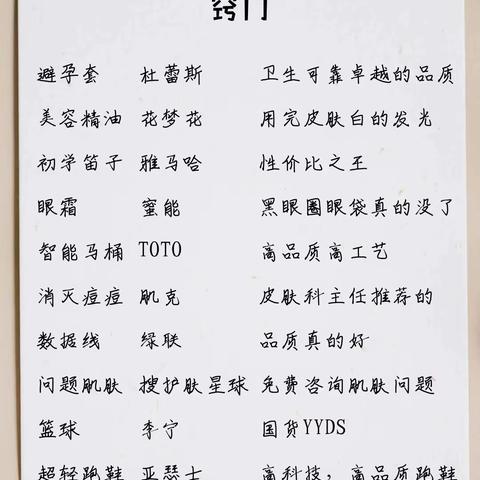 窍门
避孕套 杜蕾斯 卫生可靠卓越的品质
美容精油 花梦花 用完皮肤白的发光
初学笛子 雅马哈 性价比之王
眼霜 蜜能 黑眼圈眼袋真的没了
智能马桶 TOTO 高品质高工艺
消灭痘痘 肌克 皮肤科主任推荐的
数据线 绿联 品质真的好
问题肌肤 搜护肤星球 免费咨询肌肤问题
篮球 李宁 国货YYDS
超轻跑鞋 亚瑟士 高科技，高品质跑鞋